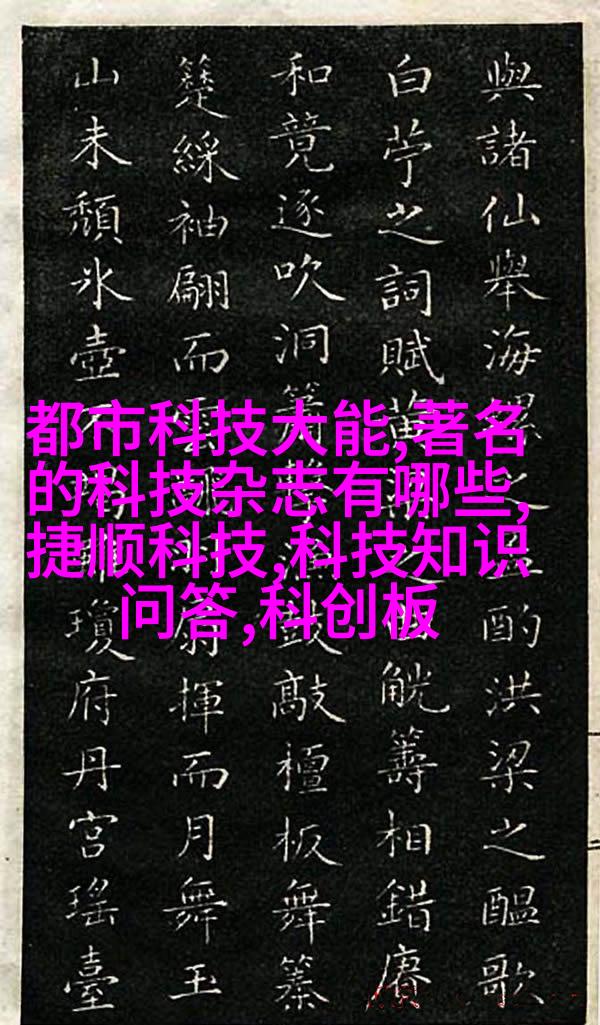 與諸仙舉海螺之酌洪梁之醞歌
白苧之詞賦黃之觥籌相錯賡
和競逐吹洞簫鼓敲檀板舞
綵袖翩而雲扇揮而月舞玉
山未頹氷壺瓊府丹宮瑤臺
都市科技大能,著名
的科技杂志有哪些,
捷顺科技,科技知识
问答,科创板